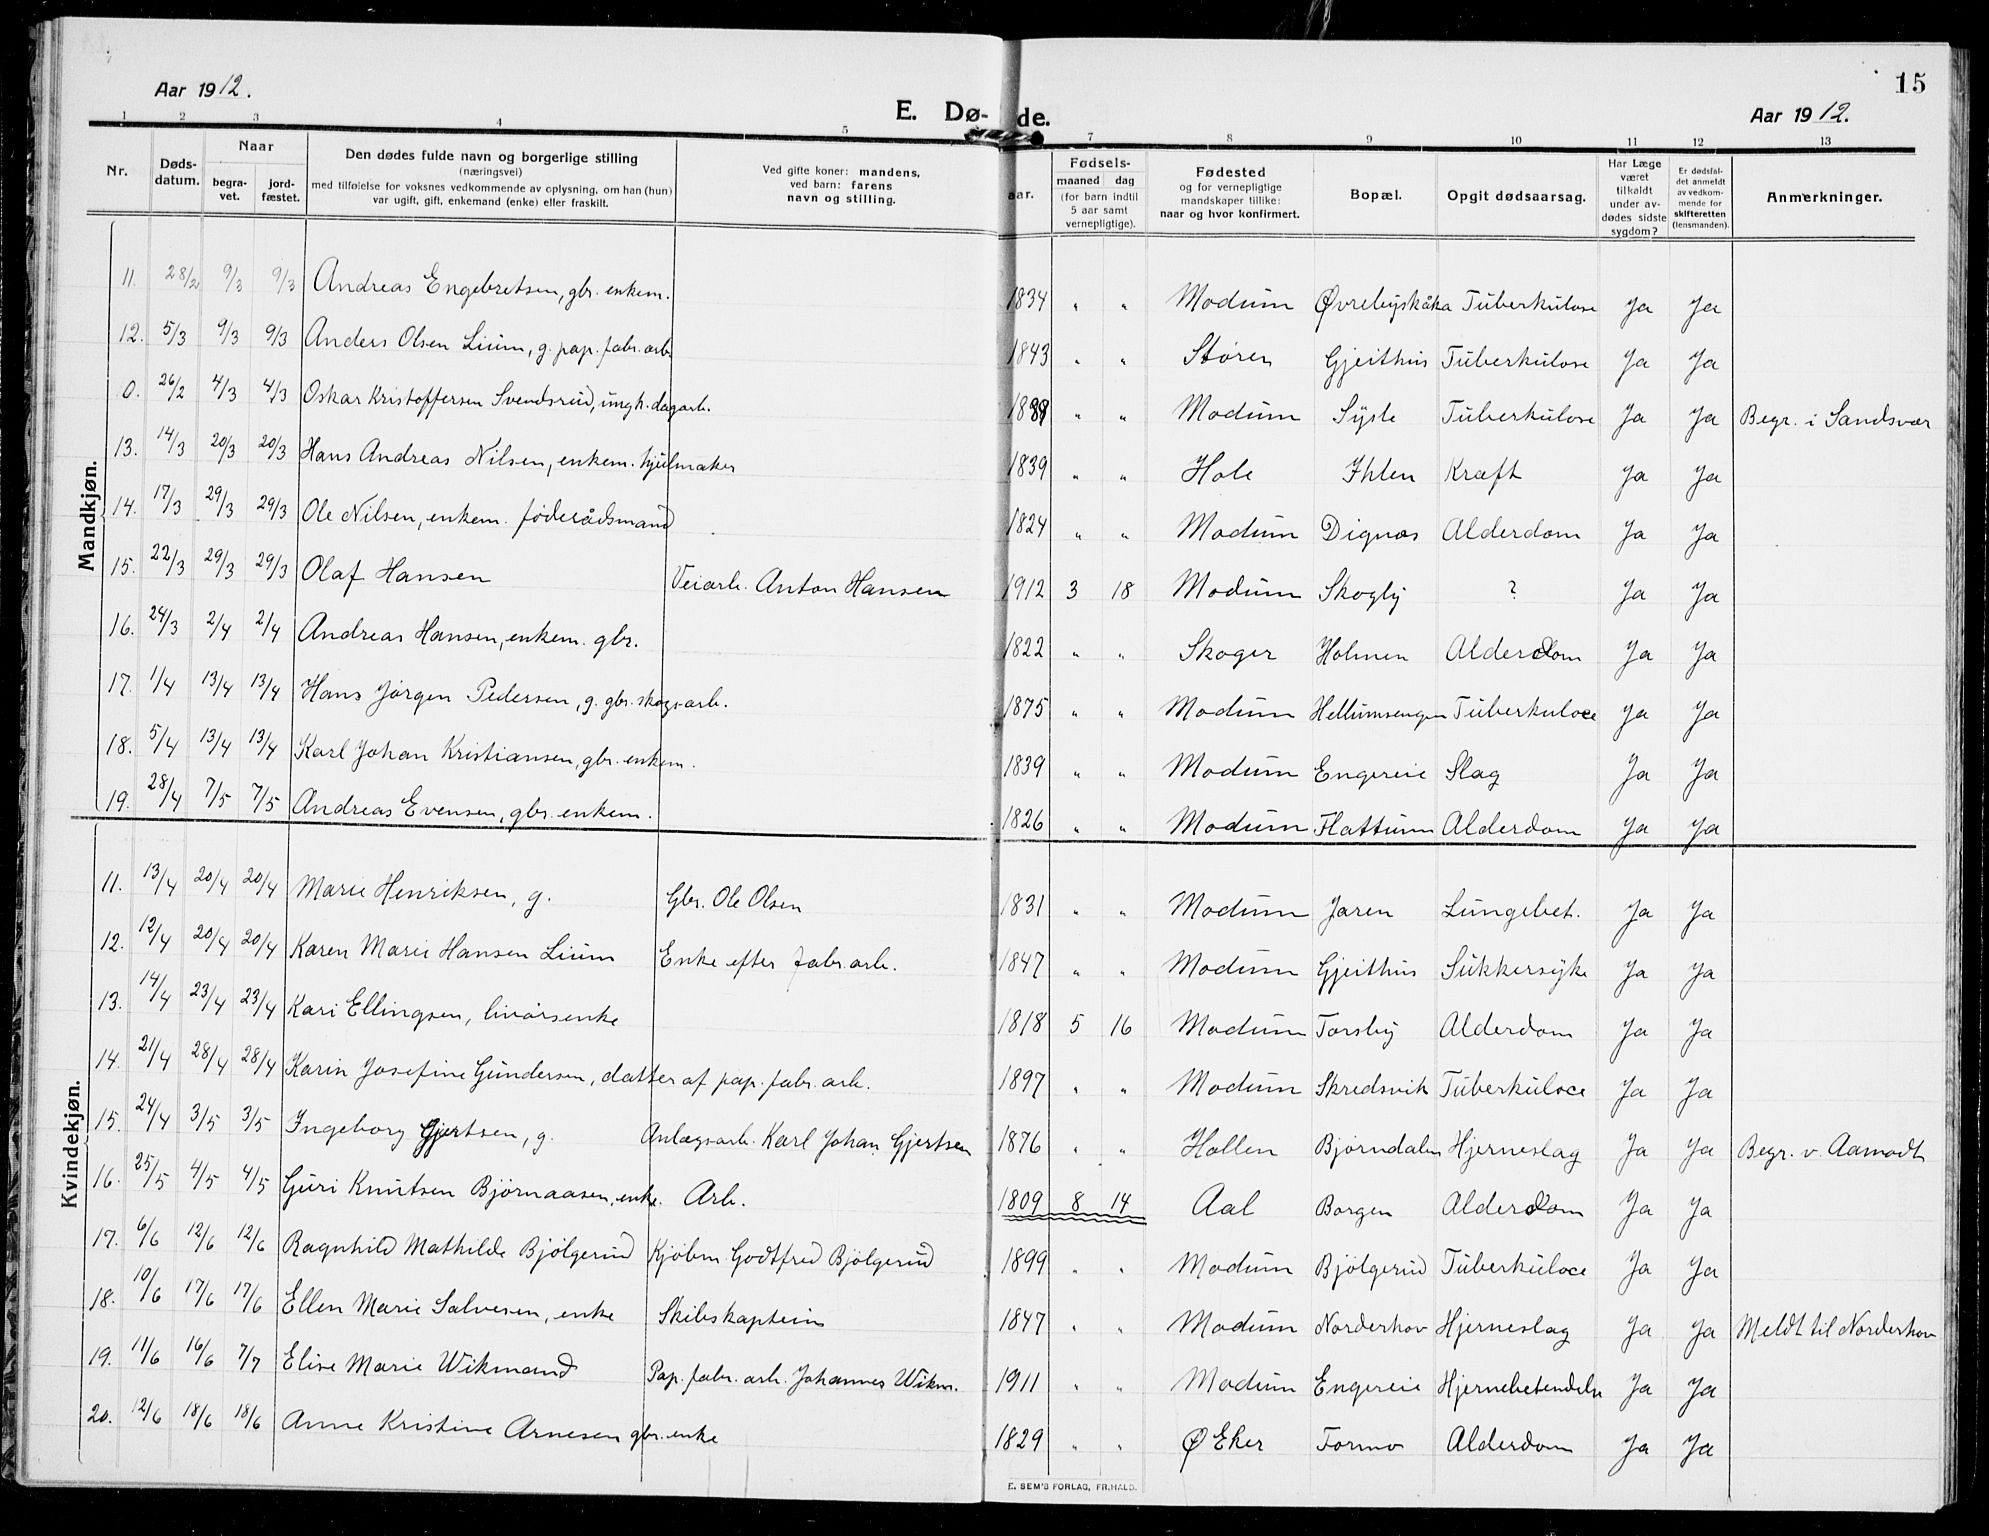 15
Aar 1912.
E. Dø- de.
Aar 1912.
1 2 3 4 5 7 8 9 10 11 12 13
Nr.
Døds-
datum.
Naar
begra-
vet.
jord-
fæstet.
Den dødes fulde navn og borgerlige stilling
(næringsvei)
med tilføielse for voksnes vedkommende av oplysning, om han (hun)
var ugift, gift, enkemand (enke) eller fraskilt.
Ved gifte koner: mandens,
ved barn: farens
navn og stilling.
aar.
Fødsels-
maaned dag
(for barn indtil
5 aar samt
vernepligtige).
Fødested
og for vernepligtige
mandskaper tillike:
naar og hvor konfirmert.
Bopæl.
Opgit dødsaarsag.
Har Læge
været
tilkaldt
under av-
dødes sidste
sygdom?
Er dødsfal-
det anmeldt
av vedkom-
mende for
skifteretten
(lensmanden).
Anmerkninger.
Mandkjøn.
11. 28/2 9/3 9/3 Andreas Engebretsen, gbr. enkem. 1834 " " Modum Øvrebyskåka Tuberkulose Ja Ja
12. 5/3 9/3 9/3 Anders Olsen Lium, g. pap. fabr. arb. 1843 " " Støren Gjeithus Tuberkulose Ja Ja
0. 26/2 4/3 4/3 Oskar Kristoffersen Svendsrud, ungk. dagarb. 1889 " " Modum Sysle Tuberkulose Ja Ja Begr. i Sandsvær
13. 14/3 20/3 20/3 Hans Andreas Nilsen, enkem. hjulmaker 1839 " " Hole Ihlen Kræft Ja Ja
14. 17/3 29/3 29/3 Ole Nilsen, enkem. føderådsmand 1824 " " Modum Dignæs Alderdom Ja Ja
15. 22/3 29/3 29/3 Olaf Hansen Veiarb. Anton Hansen 1912 3 18 Modum Skogly ? Ja Ja
16. 24/3 2/4 2/4 Andreas Hansen, enkem. gbr. 1822 " " Skoger Holmen Alderdom Ja Ja
17. 1/4 13/4 13/4 Hans Jørgen Pedersen, g. gbr. skogsarb. 1875 " " Modum Hellumsengen Tuberkuloce Ja Ja
18. 5/4 13/4 13/4 Karl Johan Kristiansen, gbr. enkem. 1839 " " Modum Engereie Slag Ja Ja
19. 28/4 7/5 7/5 Andreas Evensen, gbr. enkem. 1826 " " Modum Flattum Alderdom Ja Ja
Kvindekjøn.
11. 13/4 20/4 20/4 Marie Henriksen, g. Gbr. Ole Olsen 1831 " " Modum Jaren Lungebet. Ja Ja
12. 12/4 20/4 20/4 Karen Marie Hansen Lium Enke efter fabr. arb. 1847 " " Modum Gjeithus Sukkersyke Ja Ja
13. 14/4 23/4 23/4 Kari Ellingsen, livørsenke 1818 5 16 Modum Torsby Alderdom Ja Ja
14. 21/4 28/4 28/4 Karin Josefine Gundersen, datter af pap. fabr. arb. 1897 " " Modum Skredsvik Tuberkuloce Ja Ja
15. 24/4 3/5 3/5 Ingeborg Gjertsen, g. Anlægsarb. Karl Johan Gjertsen 1876 " " Hollen Bjørndalen Hjerneslag Ja Ja Begr. v. Aamodt
16. 25/5 4/5 4/5 Guri Knutsen Bjørnaasen, enke. Arb. 1809 8 14 Aal Borgen Alderdom Ja Ja
17. 6/6 12/6 12/6 Ragnhild Mathilde Bjølgerud Kjøbm. Godtfred Bjølgerud 1899 " " Modum Bjølgerud Tuberkuloce Ja Ja
18. 10/6 17/6 17/6 Ellen Marie Salvesen, enke Skibskaptein 1847 " " Modum Norderhov Hjerneslag Ja Ja Meldt til Norderhov
19. 11/6 16/6 7/7 Elise Marie Wikmand Pap. fabr. arb. Johannes Wikm. 1911 " " Modum Engereie Hjernebetendelse Ja Ja
20. 12/6 18/6 18/6 Anne Kristine Arnesen gbr. enke 1829 " " Ø Eker Formo Alderdom Ja Ja
E. SEM'S FORLAG, FR.HALD.